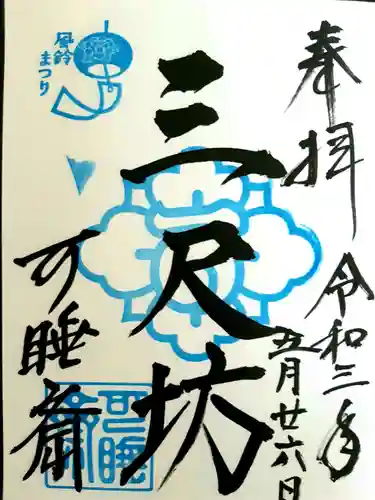 奉拝
令和三年
五月廿六日
三尺坊
風鈴
まつり
可睡斎
可睡
斎印